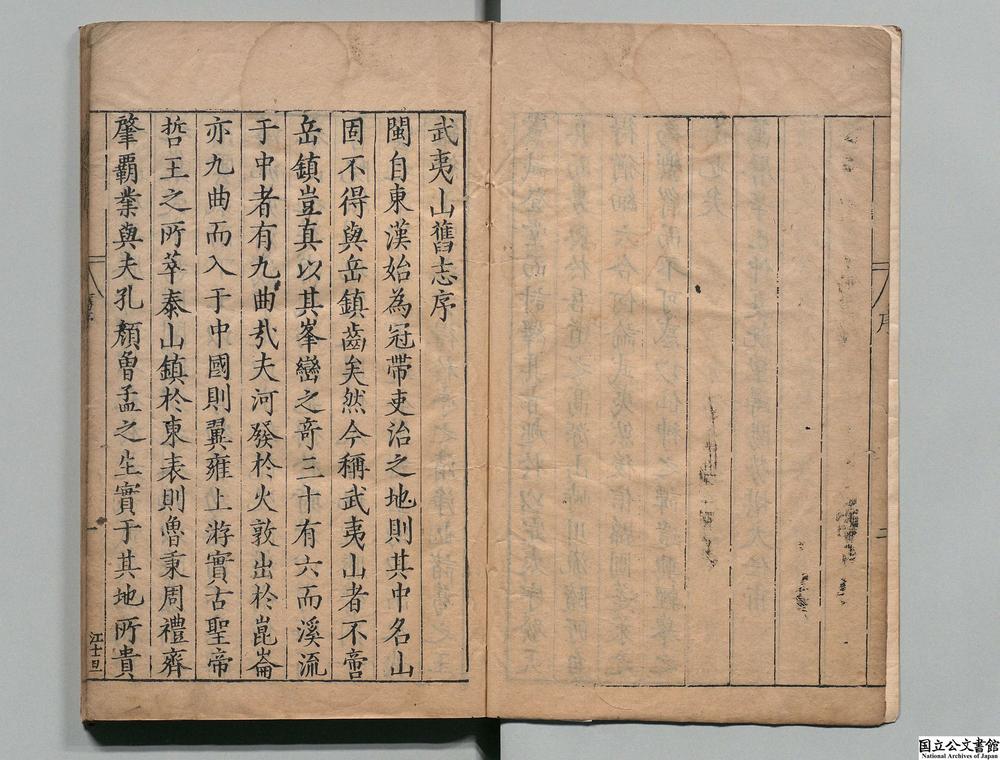 序
二
武夷山舊志序
閩自東漢始為冠帶吏治之地則其中名山
固不得與岳鎮齒矣然今稱武夷山者不啻
岳鎮豈真以其峯巒之奇三十有六而溪流
于中者有九曲㢤夫河發於火敦出於崑崙
亦九曲而入于中國則冀雍上游實古聖帝
哲王之所萃泰山鎮於東表則魯秉周禮齊
肇覇業與夫孔顏曾孟之生實于其地所貴
一
江士旦
国立公文書館
National Archives of Japan